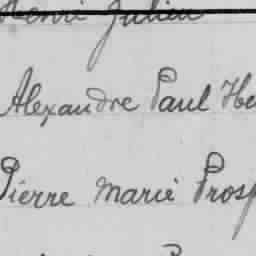 Henri Julien
Alexandre Paul He
Pierre Marie Prosp